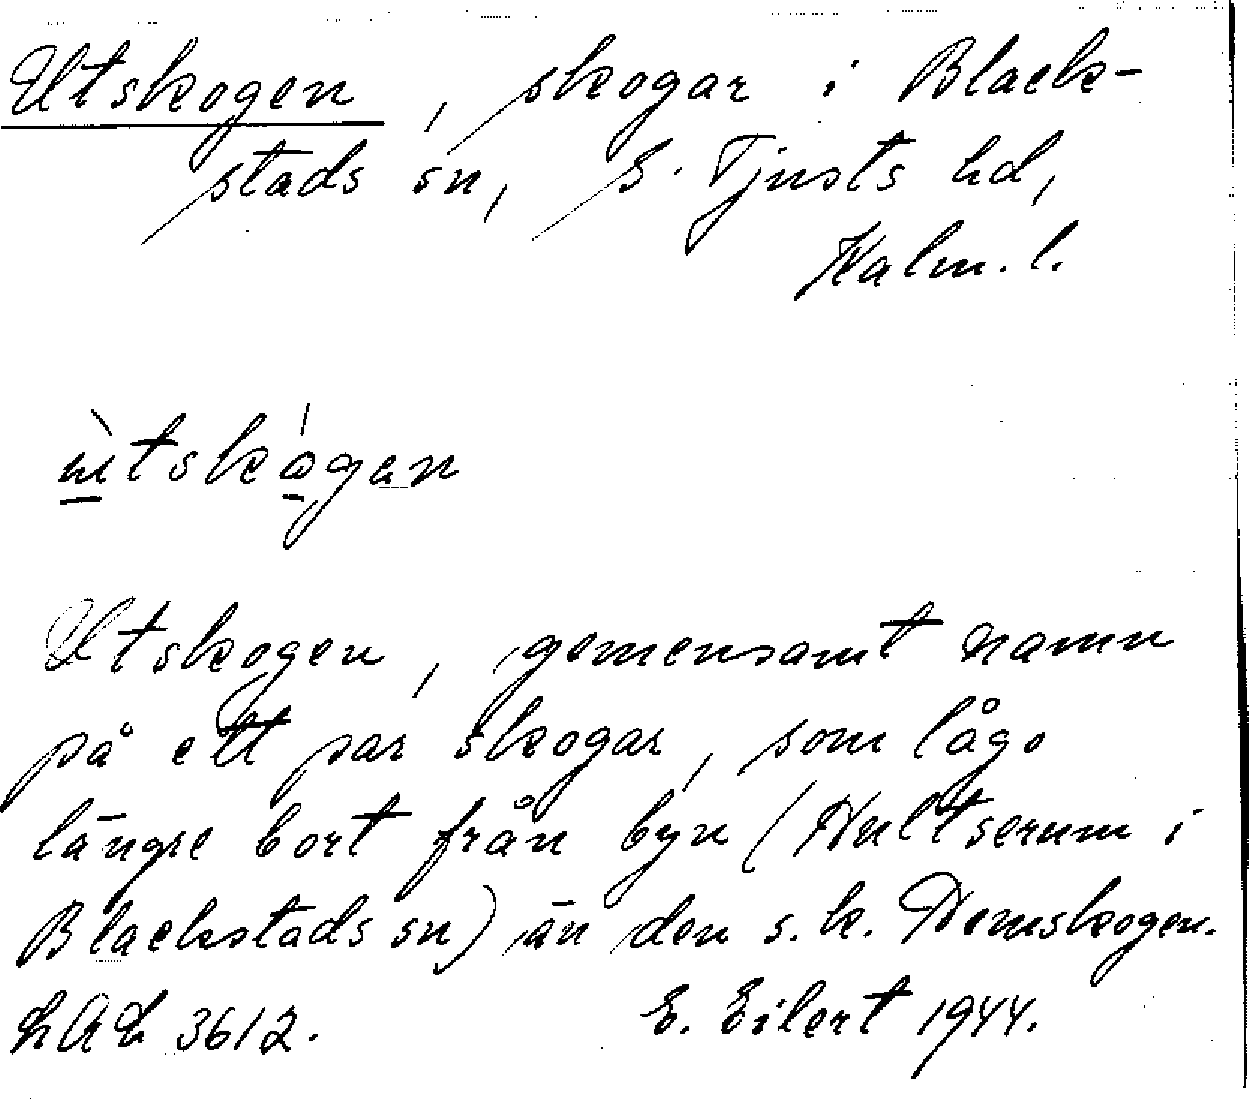 Utskogen, skogar i Black-
stads sn, S. Tjusts hd,
Kalm. l.
ùtskógan
Utskogen, gemensamt namn
på ett par skogar, som lågo
längre bort från byn (Hultserum i
Blackstads sn) än den s.k. Hemskogen.
LAL 3612. E. Eilert 1944.